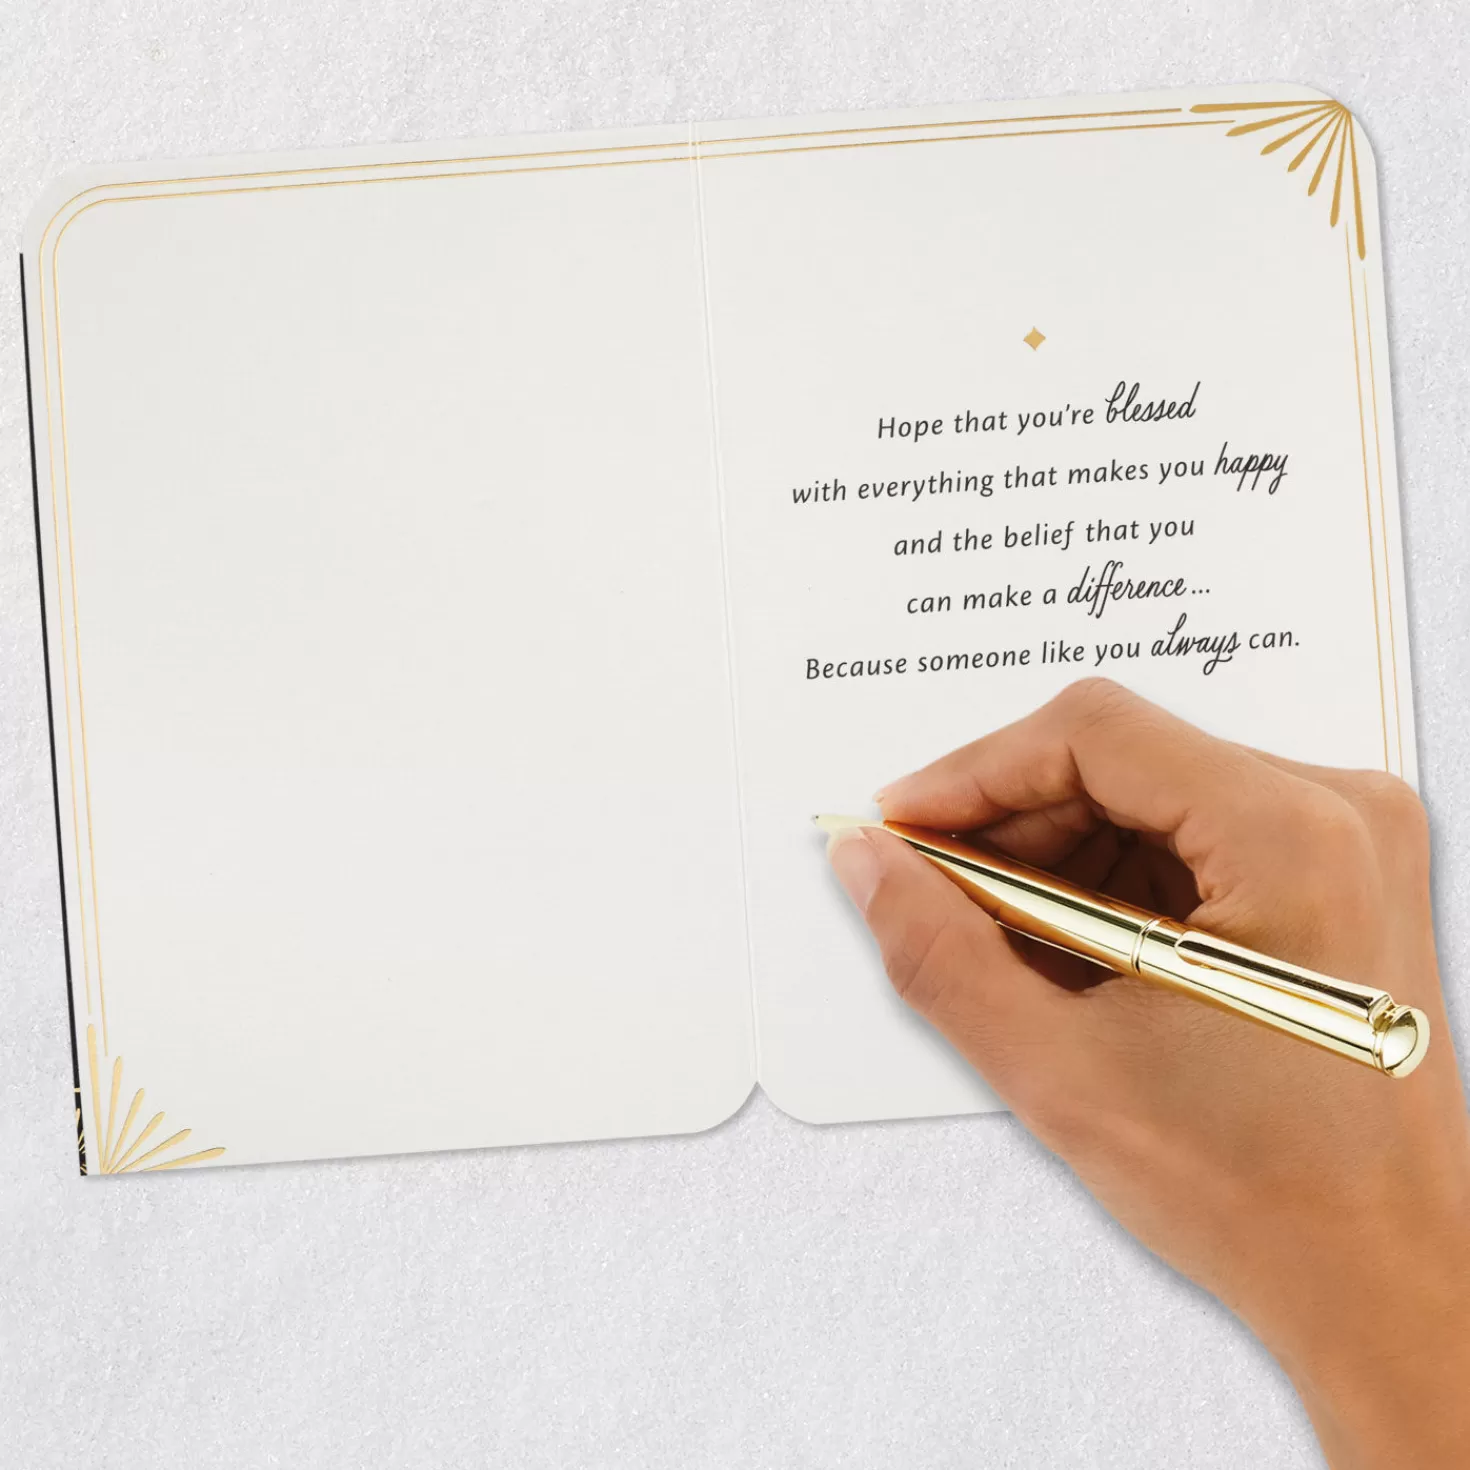 Hope that you're blessed
with everything that makes you happy
and the belief that you
can make a difference...
Because someone like you always can.